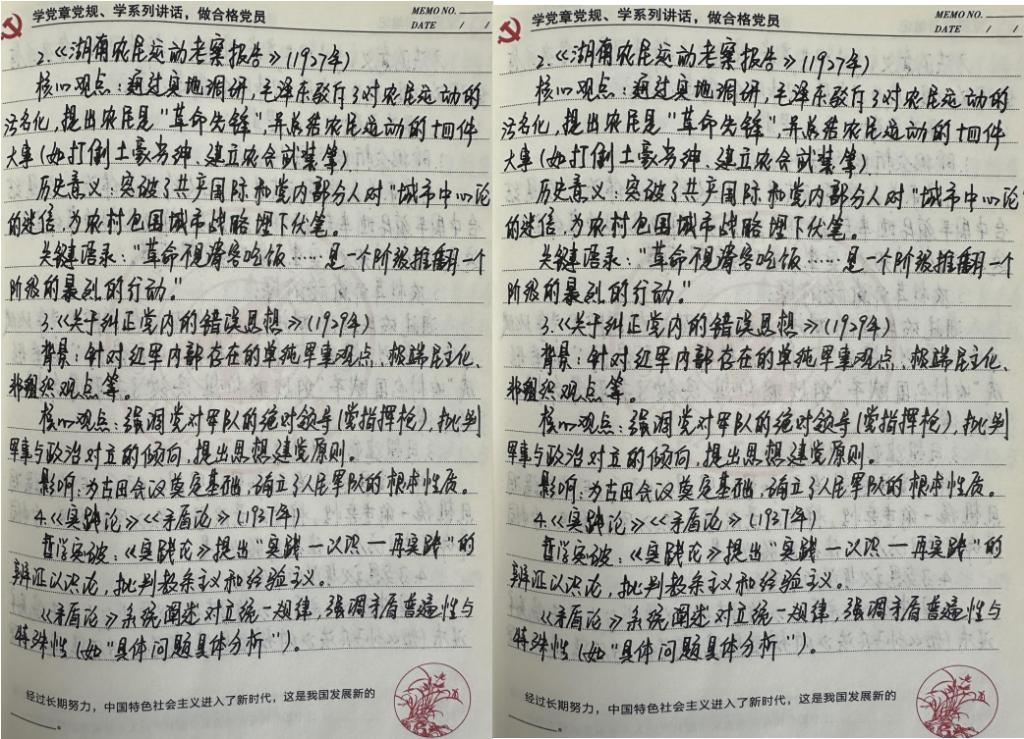 学党章党规、学系列讲话，做合格党员
MEMO NO.
DATE / /
2.《湖南农民运动考察报告》(1927年)
核心观点：通过实地调研，毛泽东驳斥了对农民运动的
污名化，提出农民是“革命先锋”，并总结农民运动的十四件
大事(如打倒土豪劣绅、建立农会武装等)
历史意义：突破了共产国际和党内部分人对“城市中心论
的迷信，为农村包围城市战略埋下伏笔。
关键语录：“革命不是请客吃饭……是一个阶级推翻一个
阶级的暴烈的行动。”
3.《关于纠正党内的错误思想》(1929年)
背景：针对红军内部存在的单纯军事观点、极端民主化、
非组织观点等。
核心观点：强调党对军队的绝对领导(党指挥枪)，批判
军事与政治对立的倾向，提出思想建党原则。
影响：为古田会议奠定基础，确立了人民军队的根本性质。
4.《实践论》《矛盾论》(1937年)
哲学突破：《实践论》提出“实践—认识—再实践”的
辨证认识论，批判教条主义和经验主义。
《矛盾论》系统阐述对立统一规律，强调矛盾普遍性与
特殊性(如“具体问题具体分析”)。
经过长期努力，中国特色社会主义进入了新时代，这是我国发展新的
。
学党章党规、学系列讲话，做合格党员
MEMO NO.
DATE / /
2.《湖南农民运动考察报告》(1927年)
核心观点：通过实地调研，毛泽东驳斥了对农民运动的
污名化，提出农民是“革命先锋”，并总结农民运动的十四件
大事(如打倒土豪劣绅、建立农会武装等)
历史意义：突破了共产国际和党内部分人对“城市中心论
的迷信，为农村包围城市战略埋下伏笔。
关键语录：“革命不是请客吃饭……是一个阶级推翻一个
阶级的暴烈的行动。”
3.《关于纠正党内的错误思想》(1929年)
背景：针对红军内部存在的单纯军事观点、极端民主化、
非组织观点等。
核心观点：强调党对军队的绝对领导(党指挥枪)，批判
军事与政治对立的倾向，提出思想建党原则。
影响：为古田会议奠定基础，确立了人民军队的根本性质。
4.《实践论》《矛盾论》(1937年)
哲学突破：《实践论》提出“实践—认识—再实践”的
辨证认识论，批判教条主义和经验主义。
《矛盾论》系统阐述对立统一规律，强调矛盾普遍性与
特殊性(如“具体问题具体分析”)。
经过长期努力，中国特色社会主义进入了新时代，这是我国发展新的
。